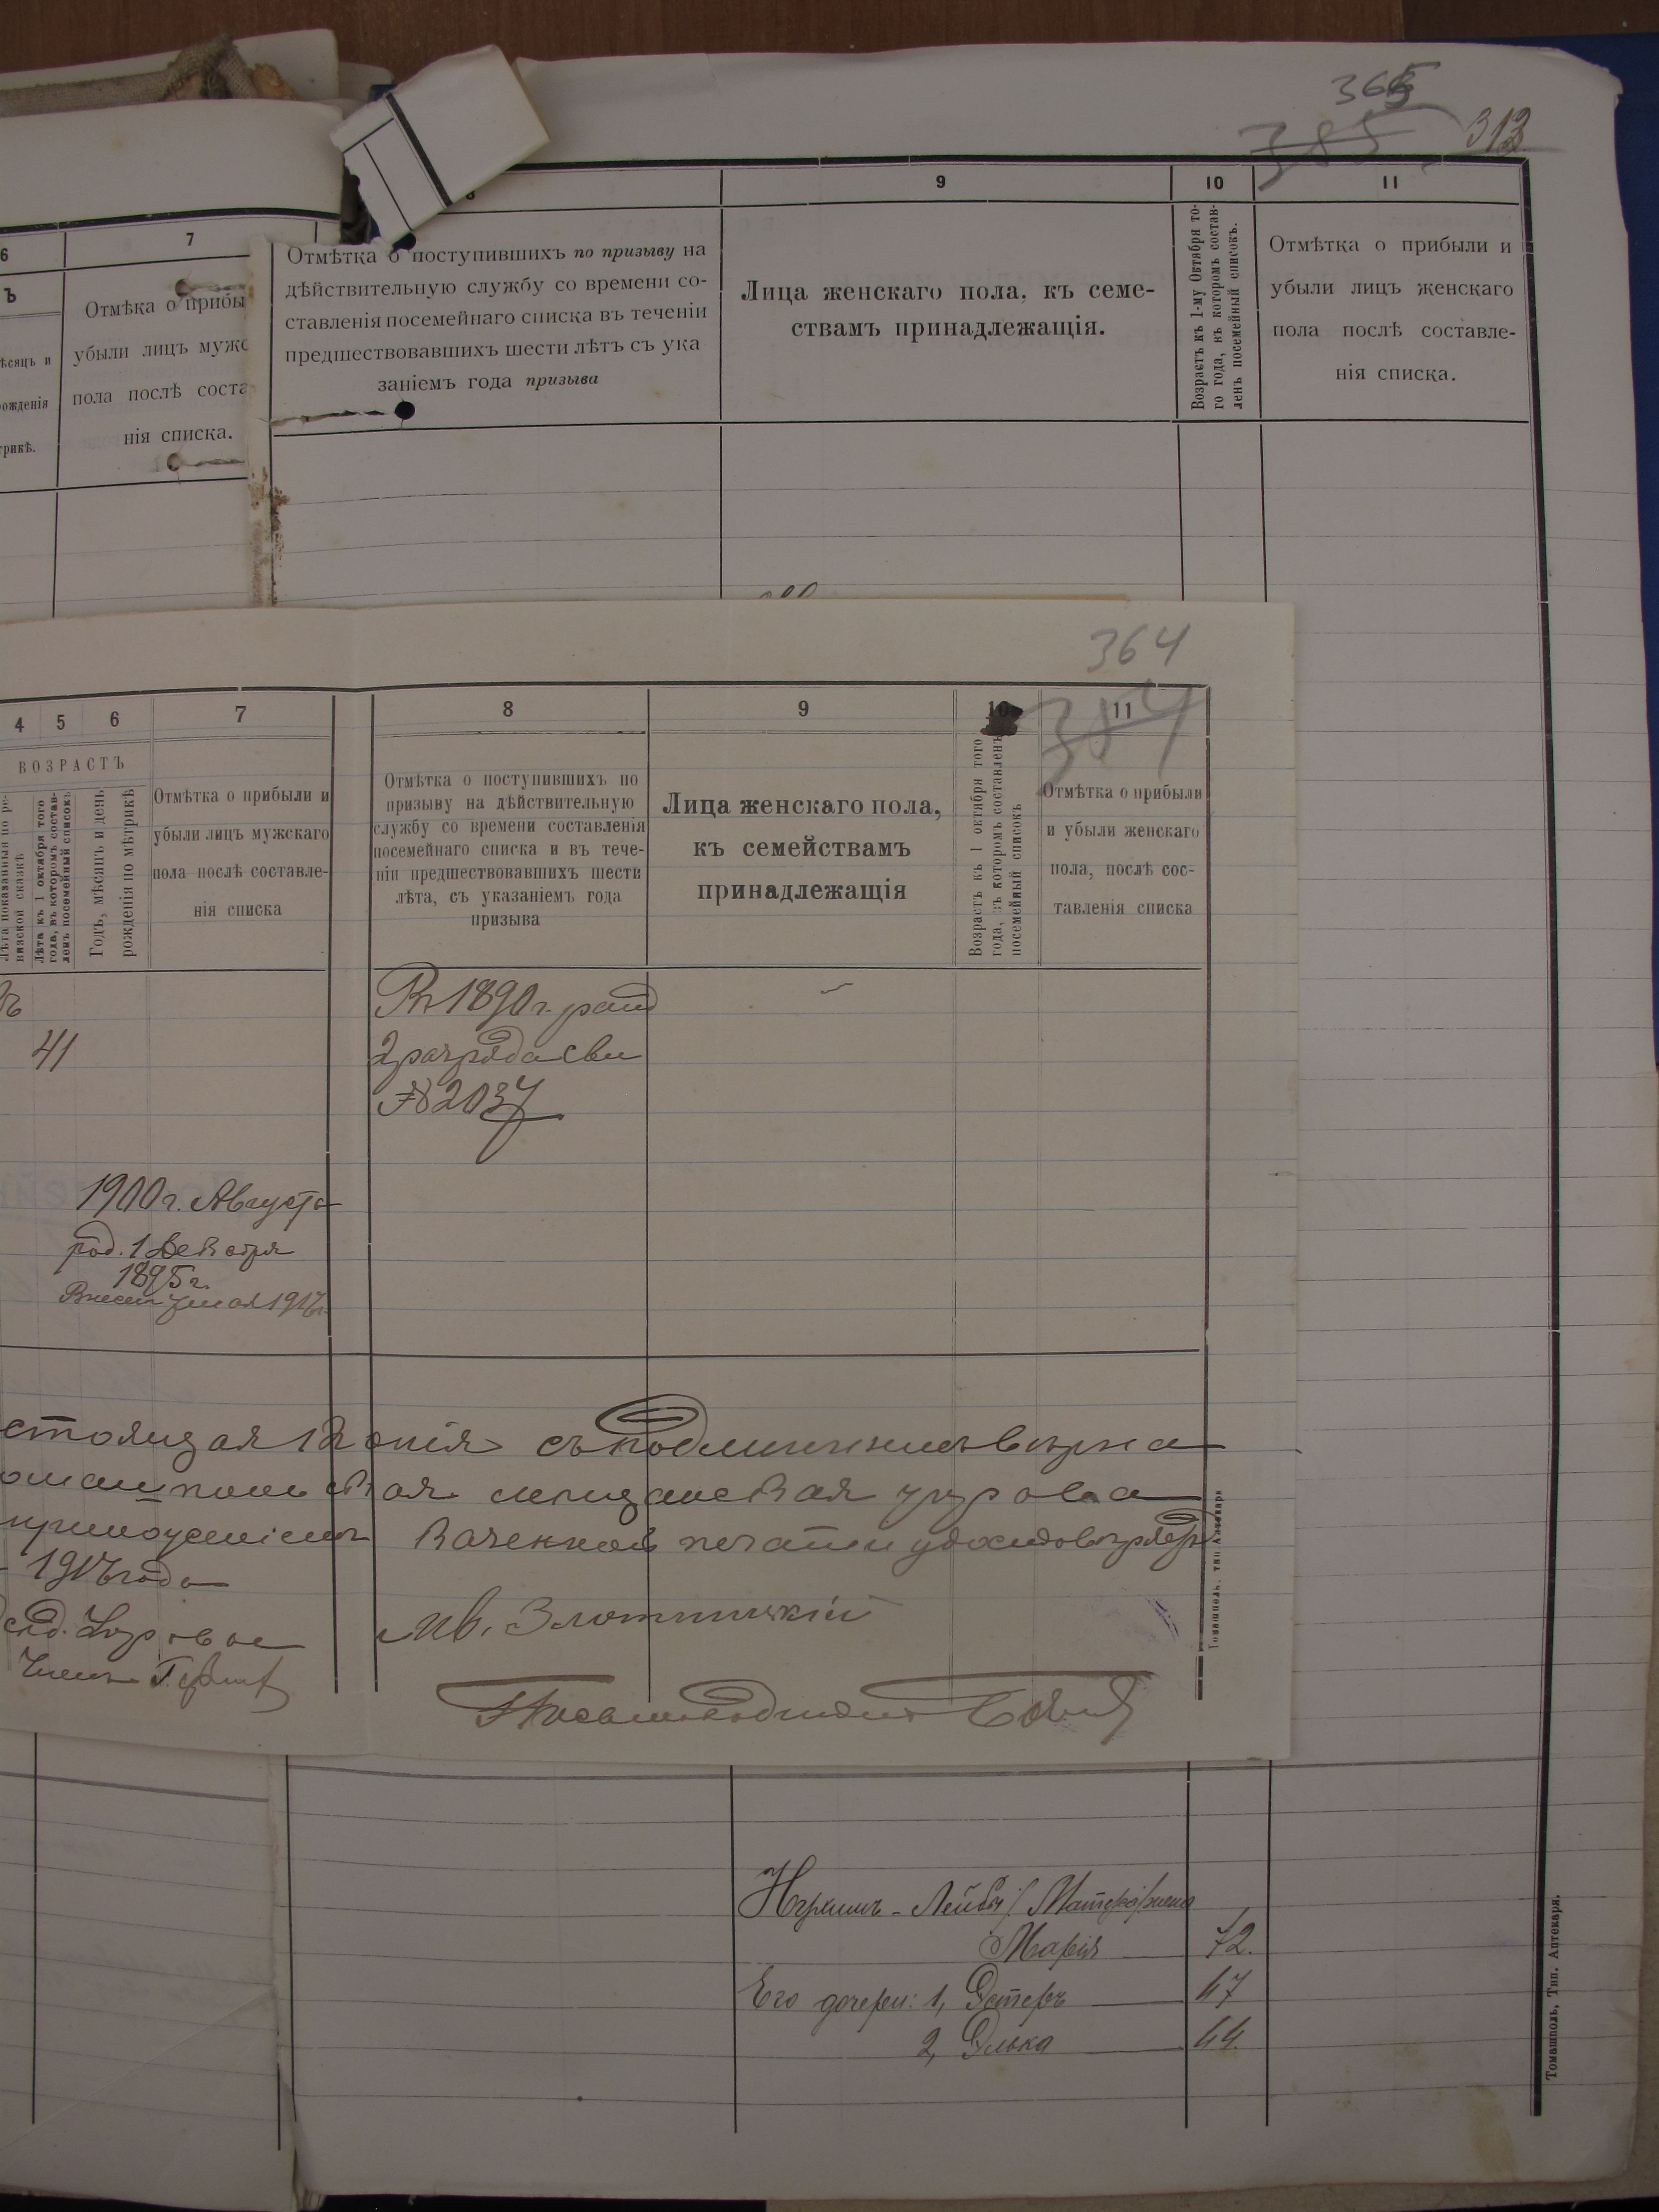 365
385
313
6
7
9
10
11
Ъ
ѣсяцъ и
рожденія
трикѣ.
Отмѣка о прибы
убыли лицъ мужс
пола послѣ соста
нія списка.
Отмѣтка о поступившихъ по призыву на
дѣйствительную службу со времени со-
ставленія посемейнаго списка въ теченіи
предшествовавшихъ шести лѣтъ съ ука
заніемъ года призыва
Лица женскаго пола, къ семе-
ствамъ принадлежащія.
Возрастъ къ 1-му Октября то-
го года, въ которомъ состав-
ленъ посемейный списокъ.
Отмѣтка о прибыли и
убыли лицъ женскаго
пола послѣ составле-
нія списка.
364
384
4 5 6 7 8 9 10 11
ВОЗРАСТЪ
Лѣта показанныя по ре-
визской сказкѣ
Лѣта къ 1 октября того
года, въ которомъ состав-
ленъ посемейный списокъ
Годъ, мѣсяцъ и день
рожденія по мѣтрикѣ
Отмѣтка о прибыли и
убыли лицъ мужскаго
пола послѣ составле-
нія списка
Отмѣтка о поступившихъ по
призыву на дѣйствительную
службу со времени составленія
посемейнаго списка и въ тече-
ніи предшествовавшихъ шести
лѣта, съ указаніемъ года
призыва
Лица женскаго пола,
къ семействамъ
принадлежащія
Возрастъ къ 1 октября того
года, въ которомъ составленъ
посемейный списокъ
Отмѣтка о прибыли
и убыли женскаго
пола, послѣ сос-
тавленія списка
Въ 1890 г.
41
2 разряда сви
№ 2037
1900 г. Августа
род. 1
1895 г.
стоящая копія съ подлиннымъ вѣрна
мѣщанская управа
приложеніемъ казенной печати удостовѣряетъ
года
Ив. Злотницкій
Членъ
Письмоводитель
Томашполь, тип Аптекаря
Лейбы Матера жена
Марія 72.
Его дочери: 1, Эстеръ 47
2, Элька 44.
Томашполь, Тип. Аптекаря.